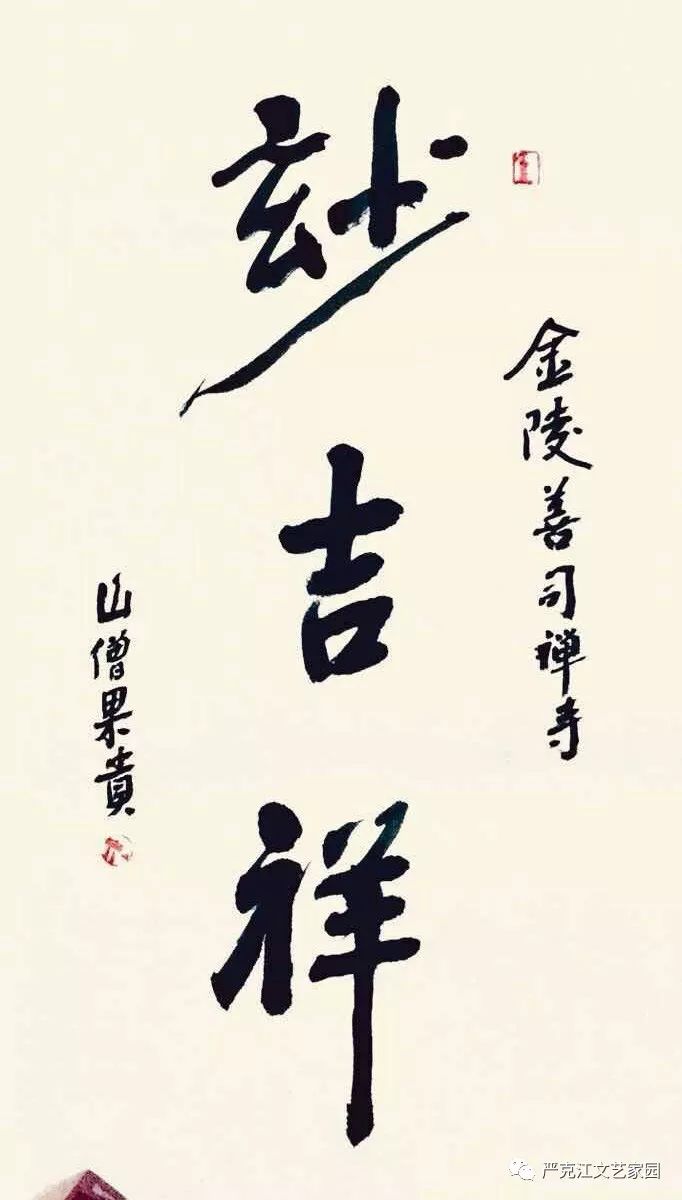 金陵善司禅寺
玅吉祥
山僧果貴
严克江文艺家园